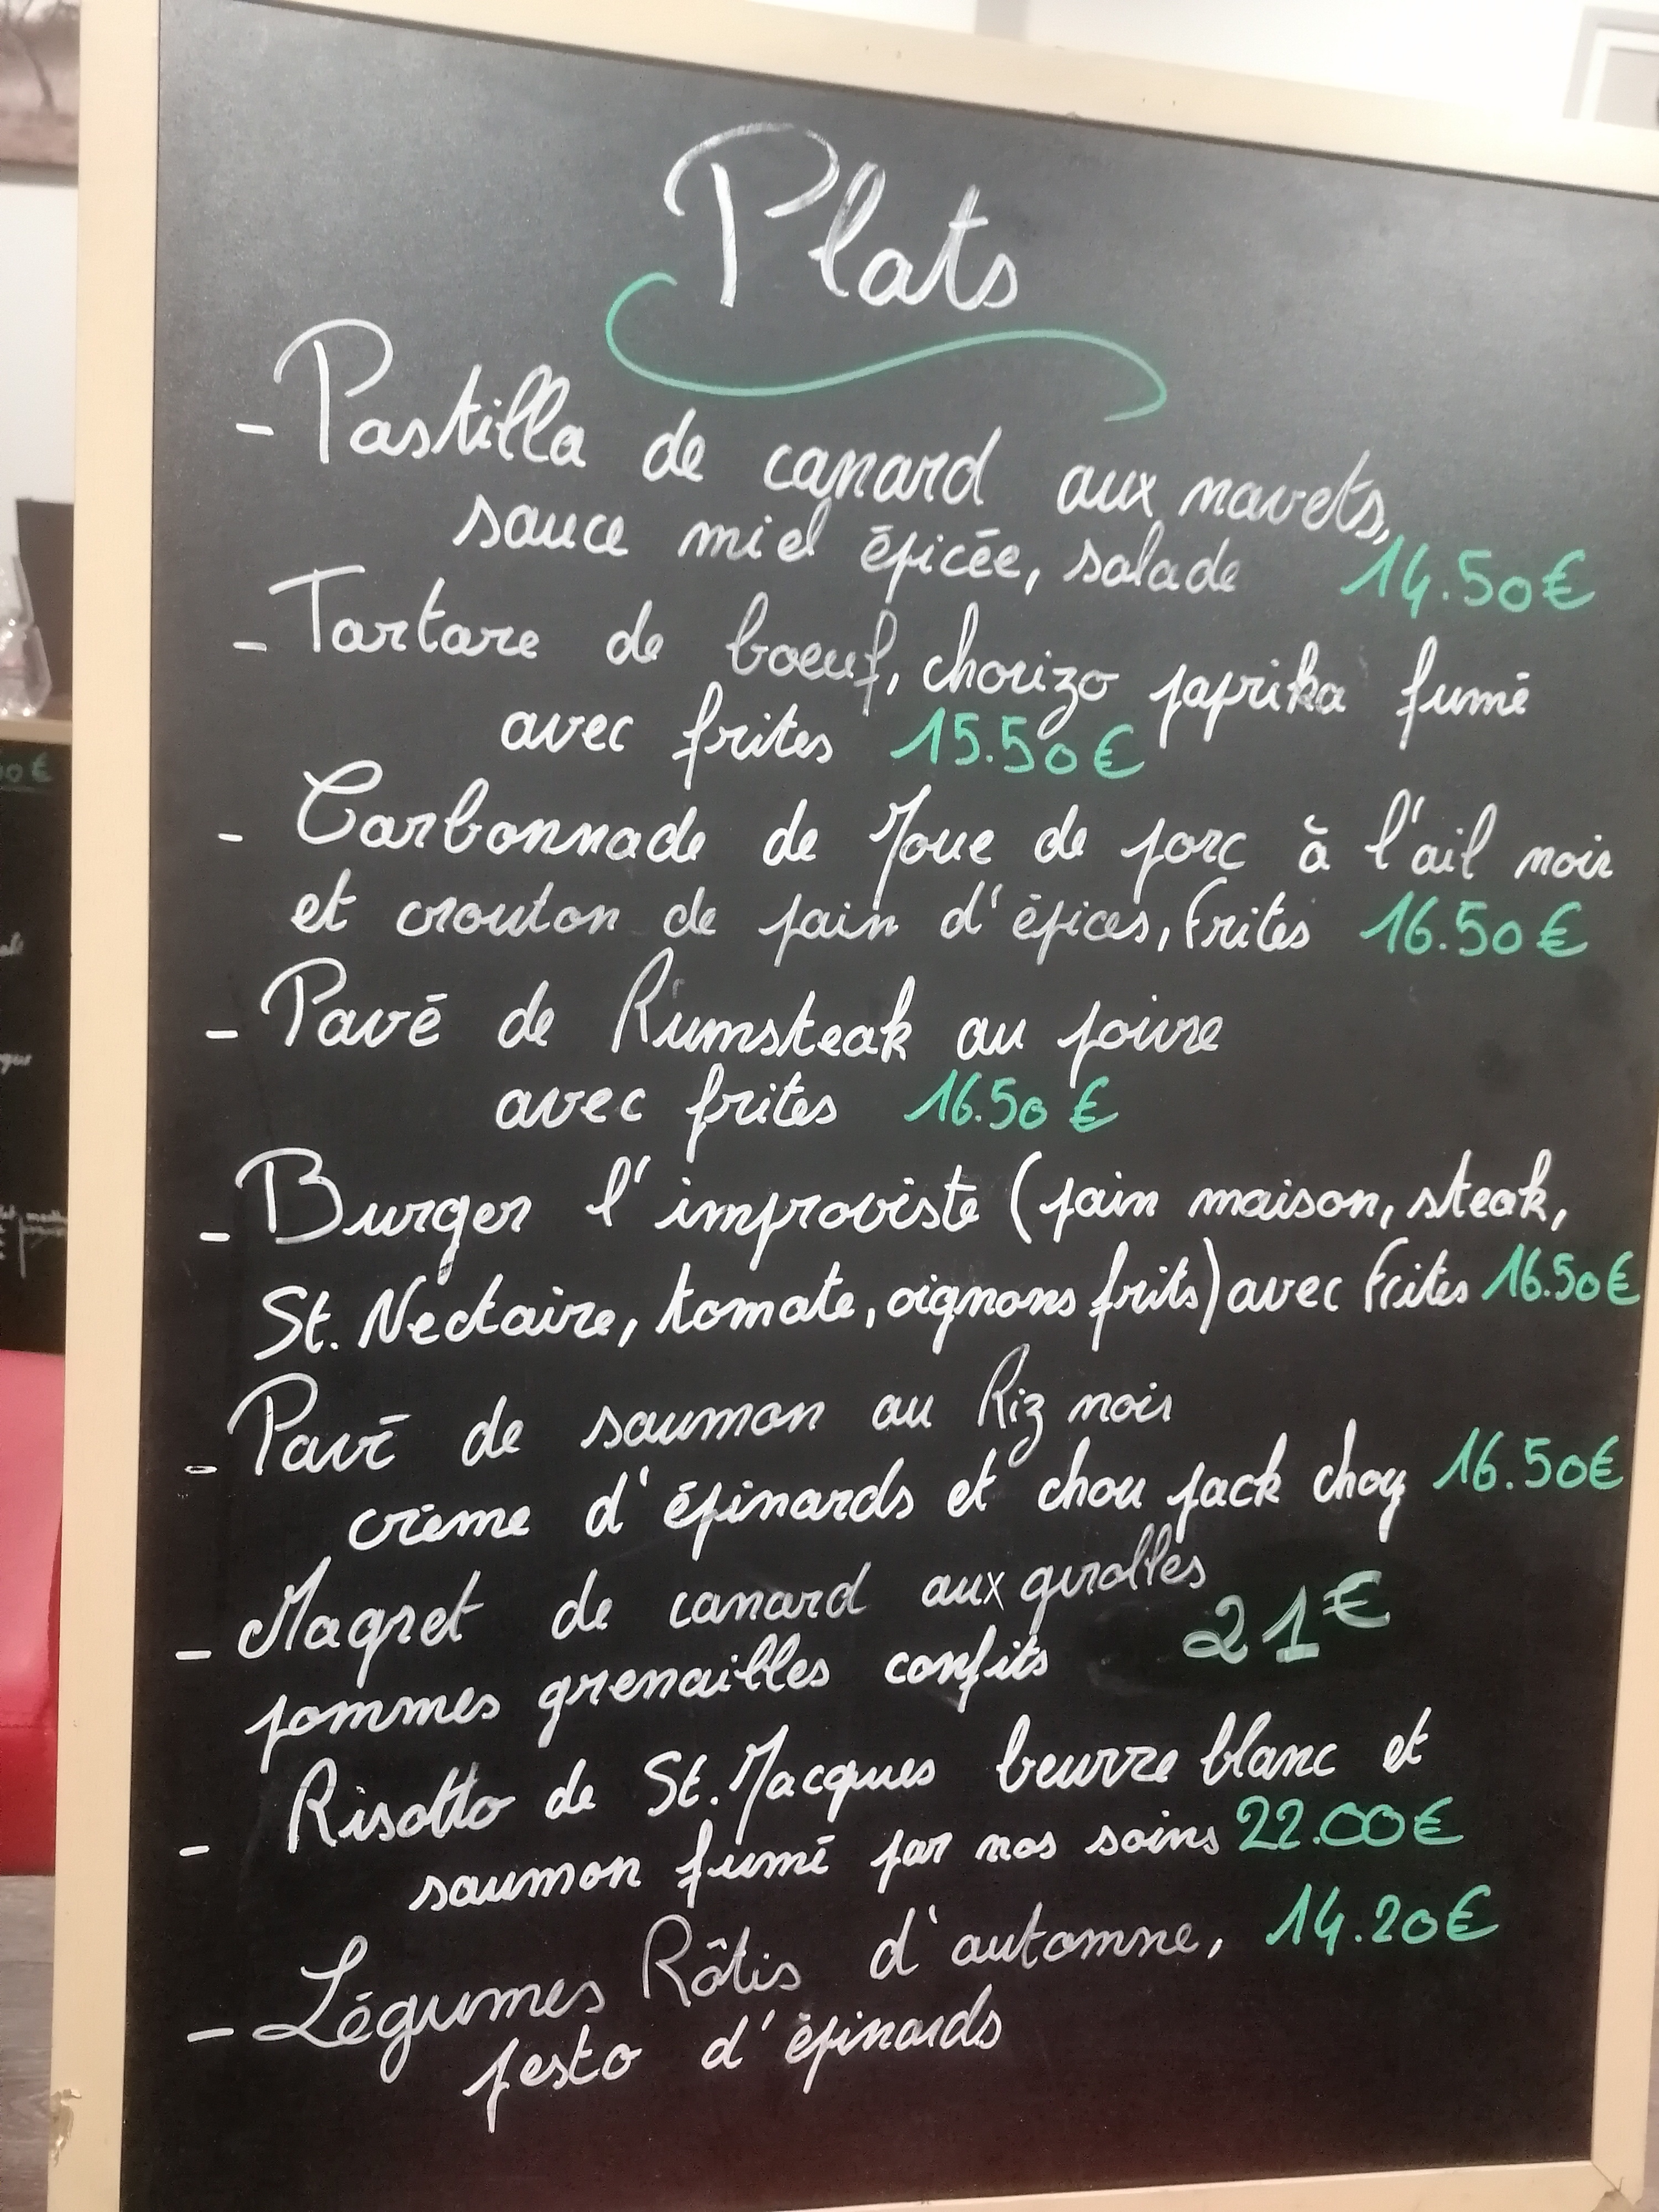 Plats
- Pastilla de canard aux navets,
sauce miel épicée, salade 14.50€
- Tartare de boeuf, chorizo paprika fumé
avec frites 15.50€
- Carbonnade de Joue de porc à l'ail noir
et crouton de pain d'épices, frites 16.50€
- Pavé de Rumsteak au poivre
avec frites 16.50€
- Burger l'improviste (pain maison, steak,
St. Nectaire, tomate, oignons frits) avec frites 16.50€
- Pavé de saumon au Riz noir
crème d'épinards et chou pack choy 16.50€
- Magret de canard aux girolles
pommes grenailles confits 21€
- Risotto de St. Jacques beurre blanc et
saumon fumé par nos soins 22.00€
- Légumes Rôtis d'automne, 14.20€
pesto d'épinards